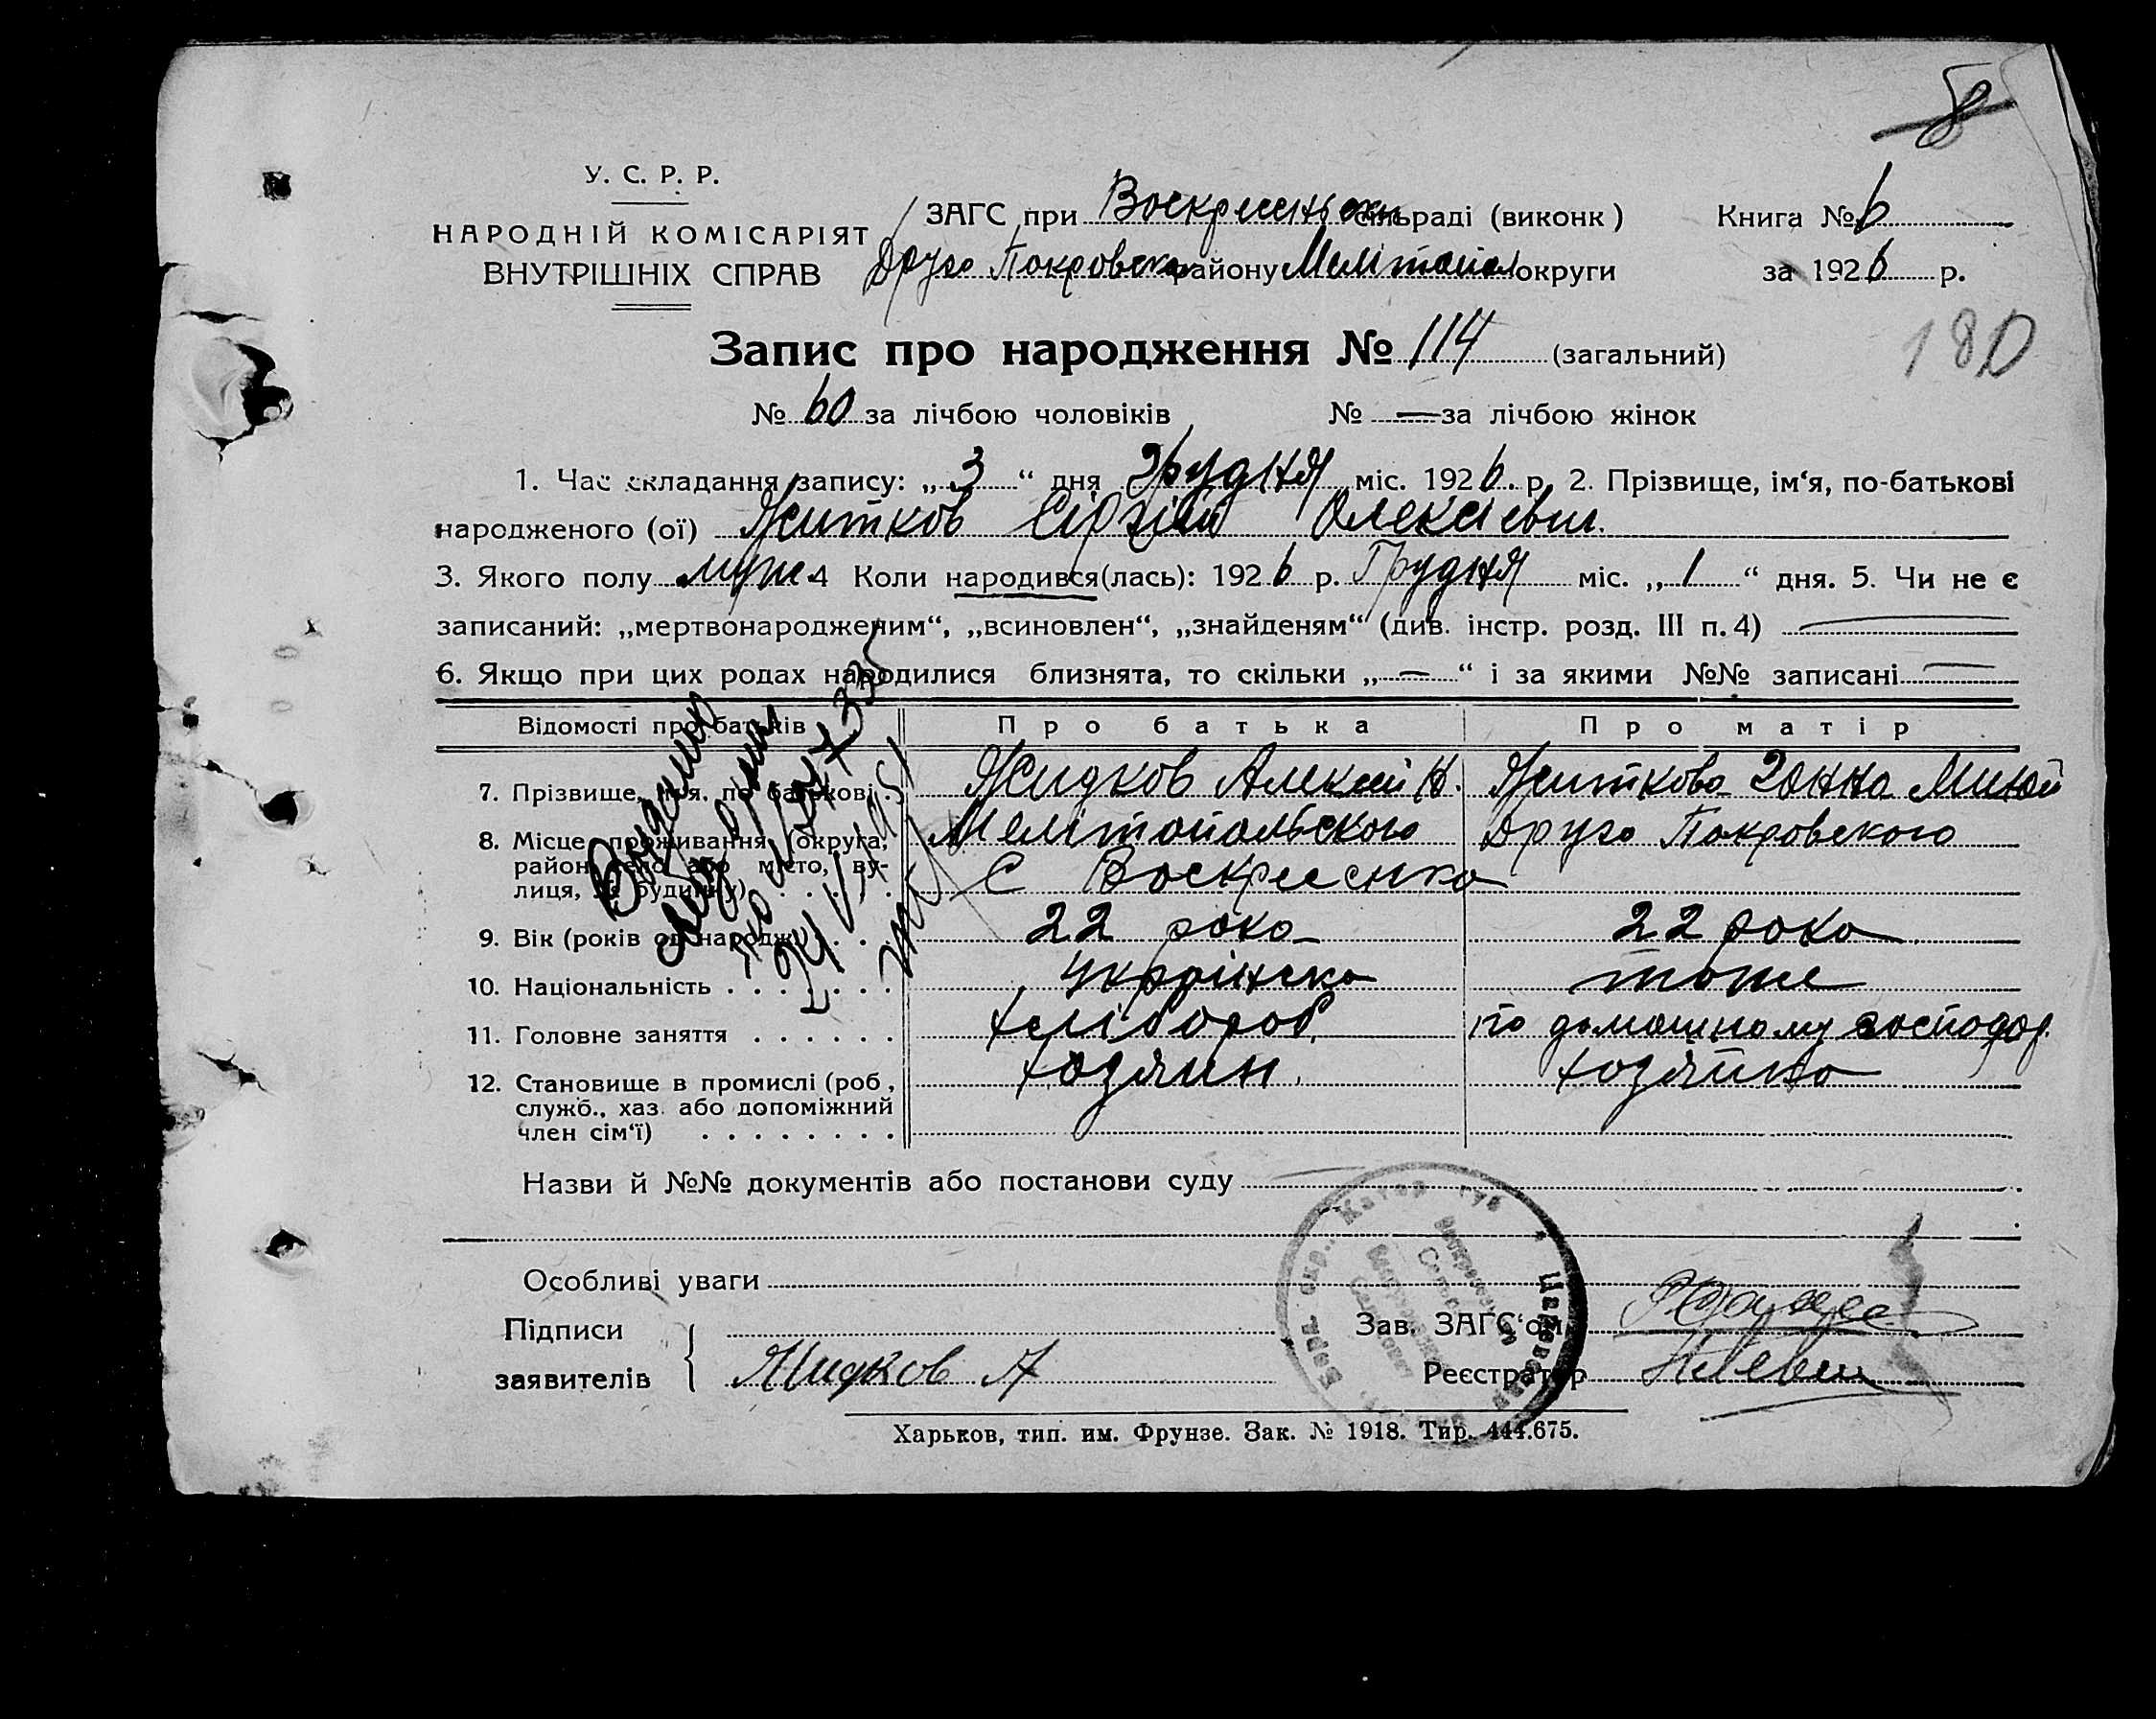 8
У. С. Р. Р.
НАРОДНІЙ КОМІСАРІЯТ
ВНУТРІШНІХ СПРАВ
ЗАГС при Воскресеньскй сільраді (виконк)
Друго Покровско району Мелітопол округи
Книга № 6
за 1926 р.
Запис про народження № 114 (загальний)
180
№ 60 за лічбою чоловіків № — за лічбою жінок
1. Час складання запису: „3“ дня Грудня міс. 1926 р. 2. Прізвище, ім‘я, по-батькові
народженого (ої) Житков Сіргій Олексієвич.
3. Якого полу муж. 4 Коли народився(лась): 1926 р. Грудня міс. „1“ дня. 5. Чи не є
записаний: „мертвонародженим“, „всиновлен“, „знайденям“ (див. інстр. розд. III п. 4)
6. Якщо при цих родах народилися близнята, то скільки „—“ і за якими №№ записані —
Відомості про батьків Про батька Про матір
7. Прізвище, ім‘я, по батькові Жидков Алексей Н. Житкова Ганна
8. Місце проживання (округа, Мелітопольского Друго Покровского
район, село або місто, ву-
лиця, № будинку) С Воскресенка
9. Вік (років од народж.) 22 рока 22 рока
10. Національність Українска тоже
11. Головне заняття хлібороб по домашному господар.
12. Становище в промислі (роб., хозяин хозяйка
служб., хаз. або допоміжний
член сім‘ї)
Выдано
Назви й №№ документів або постанови суду
Особливі уваги
Підписи
заявителів Жидков А
Зав. ЗАГС‘ом
Реєстратор
Харьков, тип. им. Фрунзе. Зак. № 1918. Тир. 444.675.